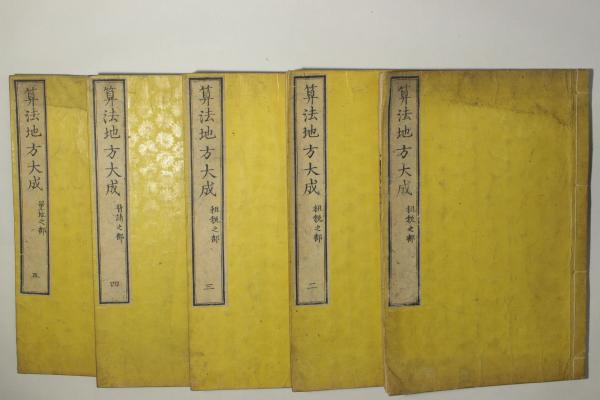 算法地方大成
租税之部
算法地方大成
租税之部
二
算法地方大成
租税之部
三
算法地方大成
普請之部
四
算法地方大成
量地之部
五